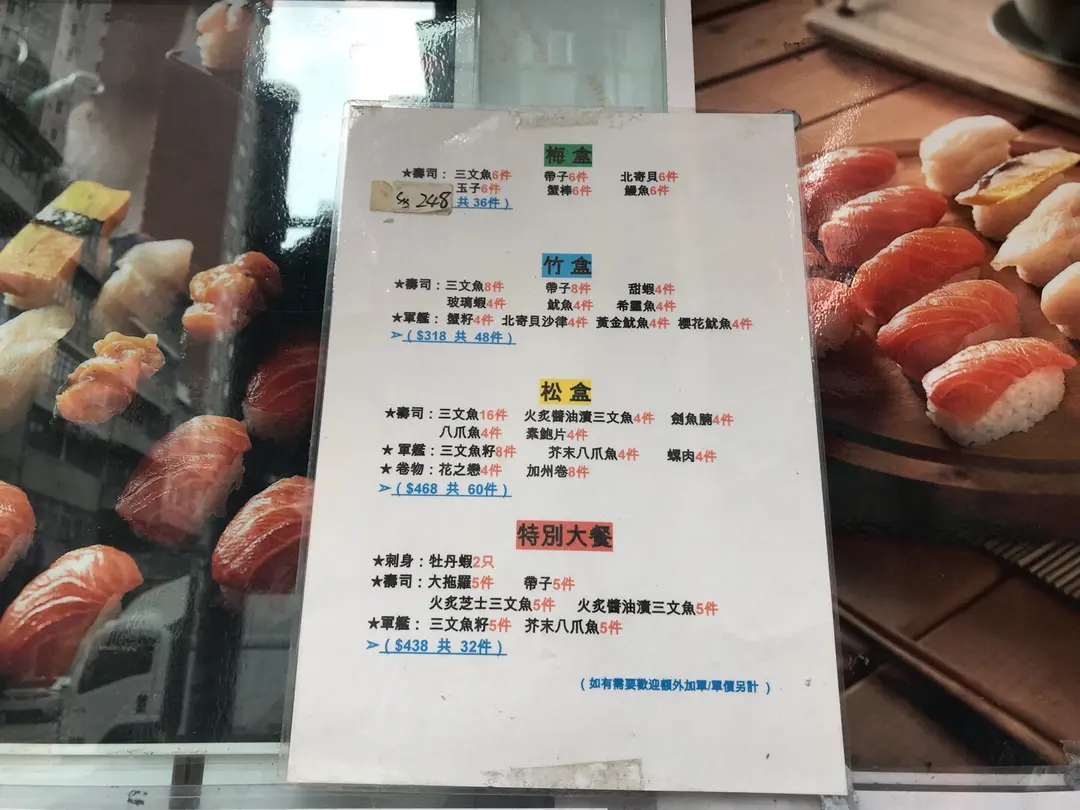 梅 盒
★壽司：三文魚6件 帶子6件 北寄貝6件
玉子6件 蟹棒6件 鰻魚6件
248 共 36件）
竹 盒
★壽司：三文魚8件 帶子8件 甜蝦4件
玻璃蝦4件 魷魚4件 希靈魚4件
★軍艦：蟹籽4件 北寄貝沙律4件 黃金魷魚4件 櫻花魷魚4件
➢（$318 共 48件）
松 盒
★壽司：三文魚16件 火炙醬油漬三文魚4件 劍魚腩4件
八爪魚4件 素鮑片4件
★軍艦：三文魚籽8件 芥末八爪魚4件 螺肉4件
★卷物：花之戀4件 加州卷8件
➢（$468 共 60件）
特別大餐
★刺身：牡丹蝦2只
★壽司：大拖羅5件 帶子5件
火炙芝士三文魚5件 火炙醬油漬三文魚5件
★軍艦：三文魚籽5件 芥末八爪魚5件
➢（$438 共 32件）
（如有需要歡迎額外加單/單價另計）